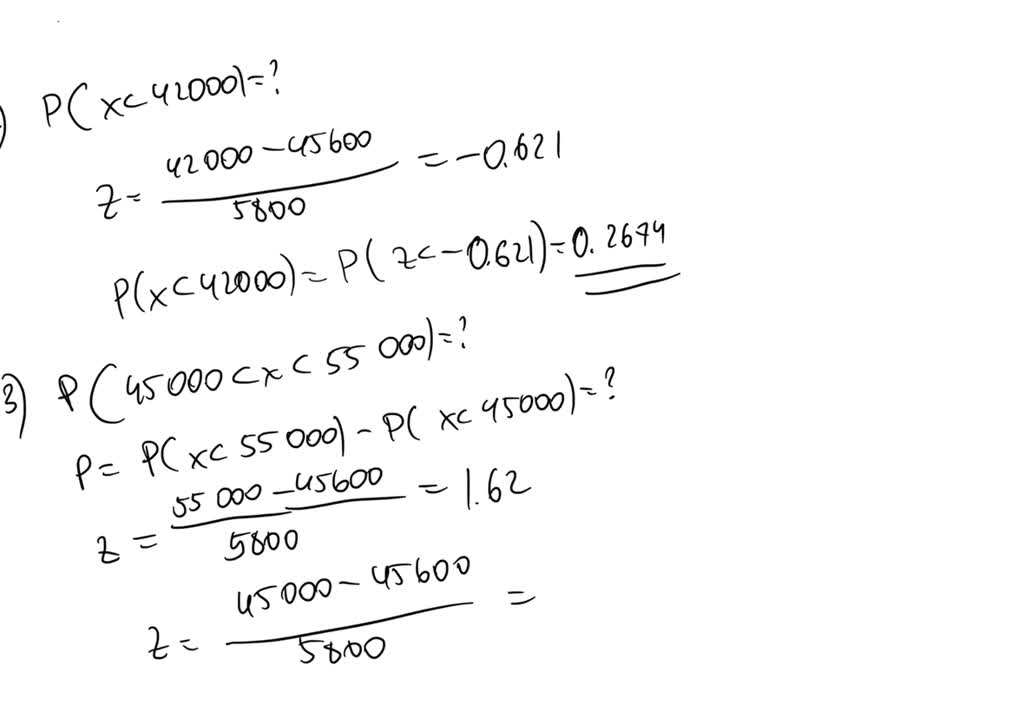 ) P(x<42000)=?
z= 42000-45600 / 5800 = -0.621
P(x<42000)=P(z<-0.621)=0.2674
3) P(45000<x<55 000)=?
P= P(x<55 000)-P(x<45000)=?
z = 55 000-45600 / 5800 = 1.62
z= 45000-45600 / 5800 =